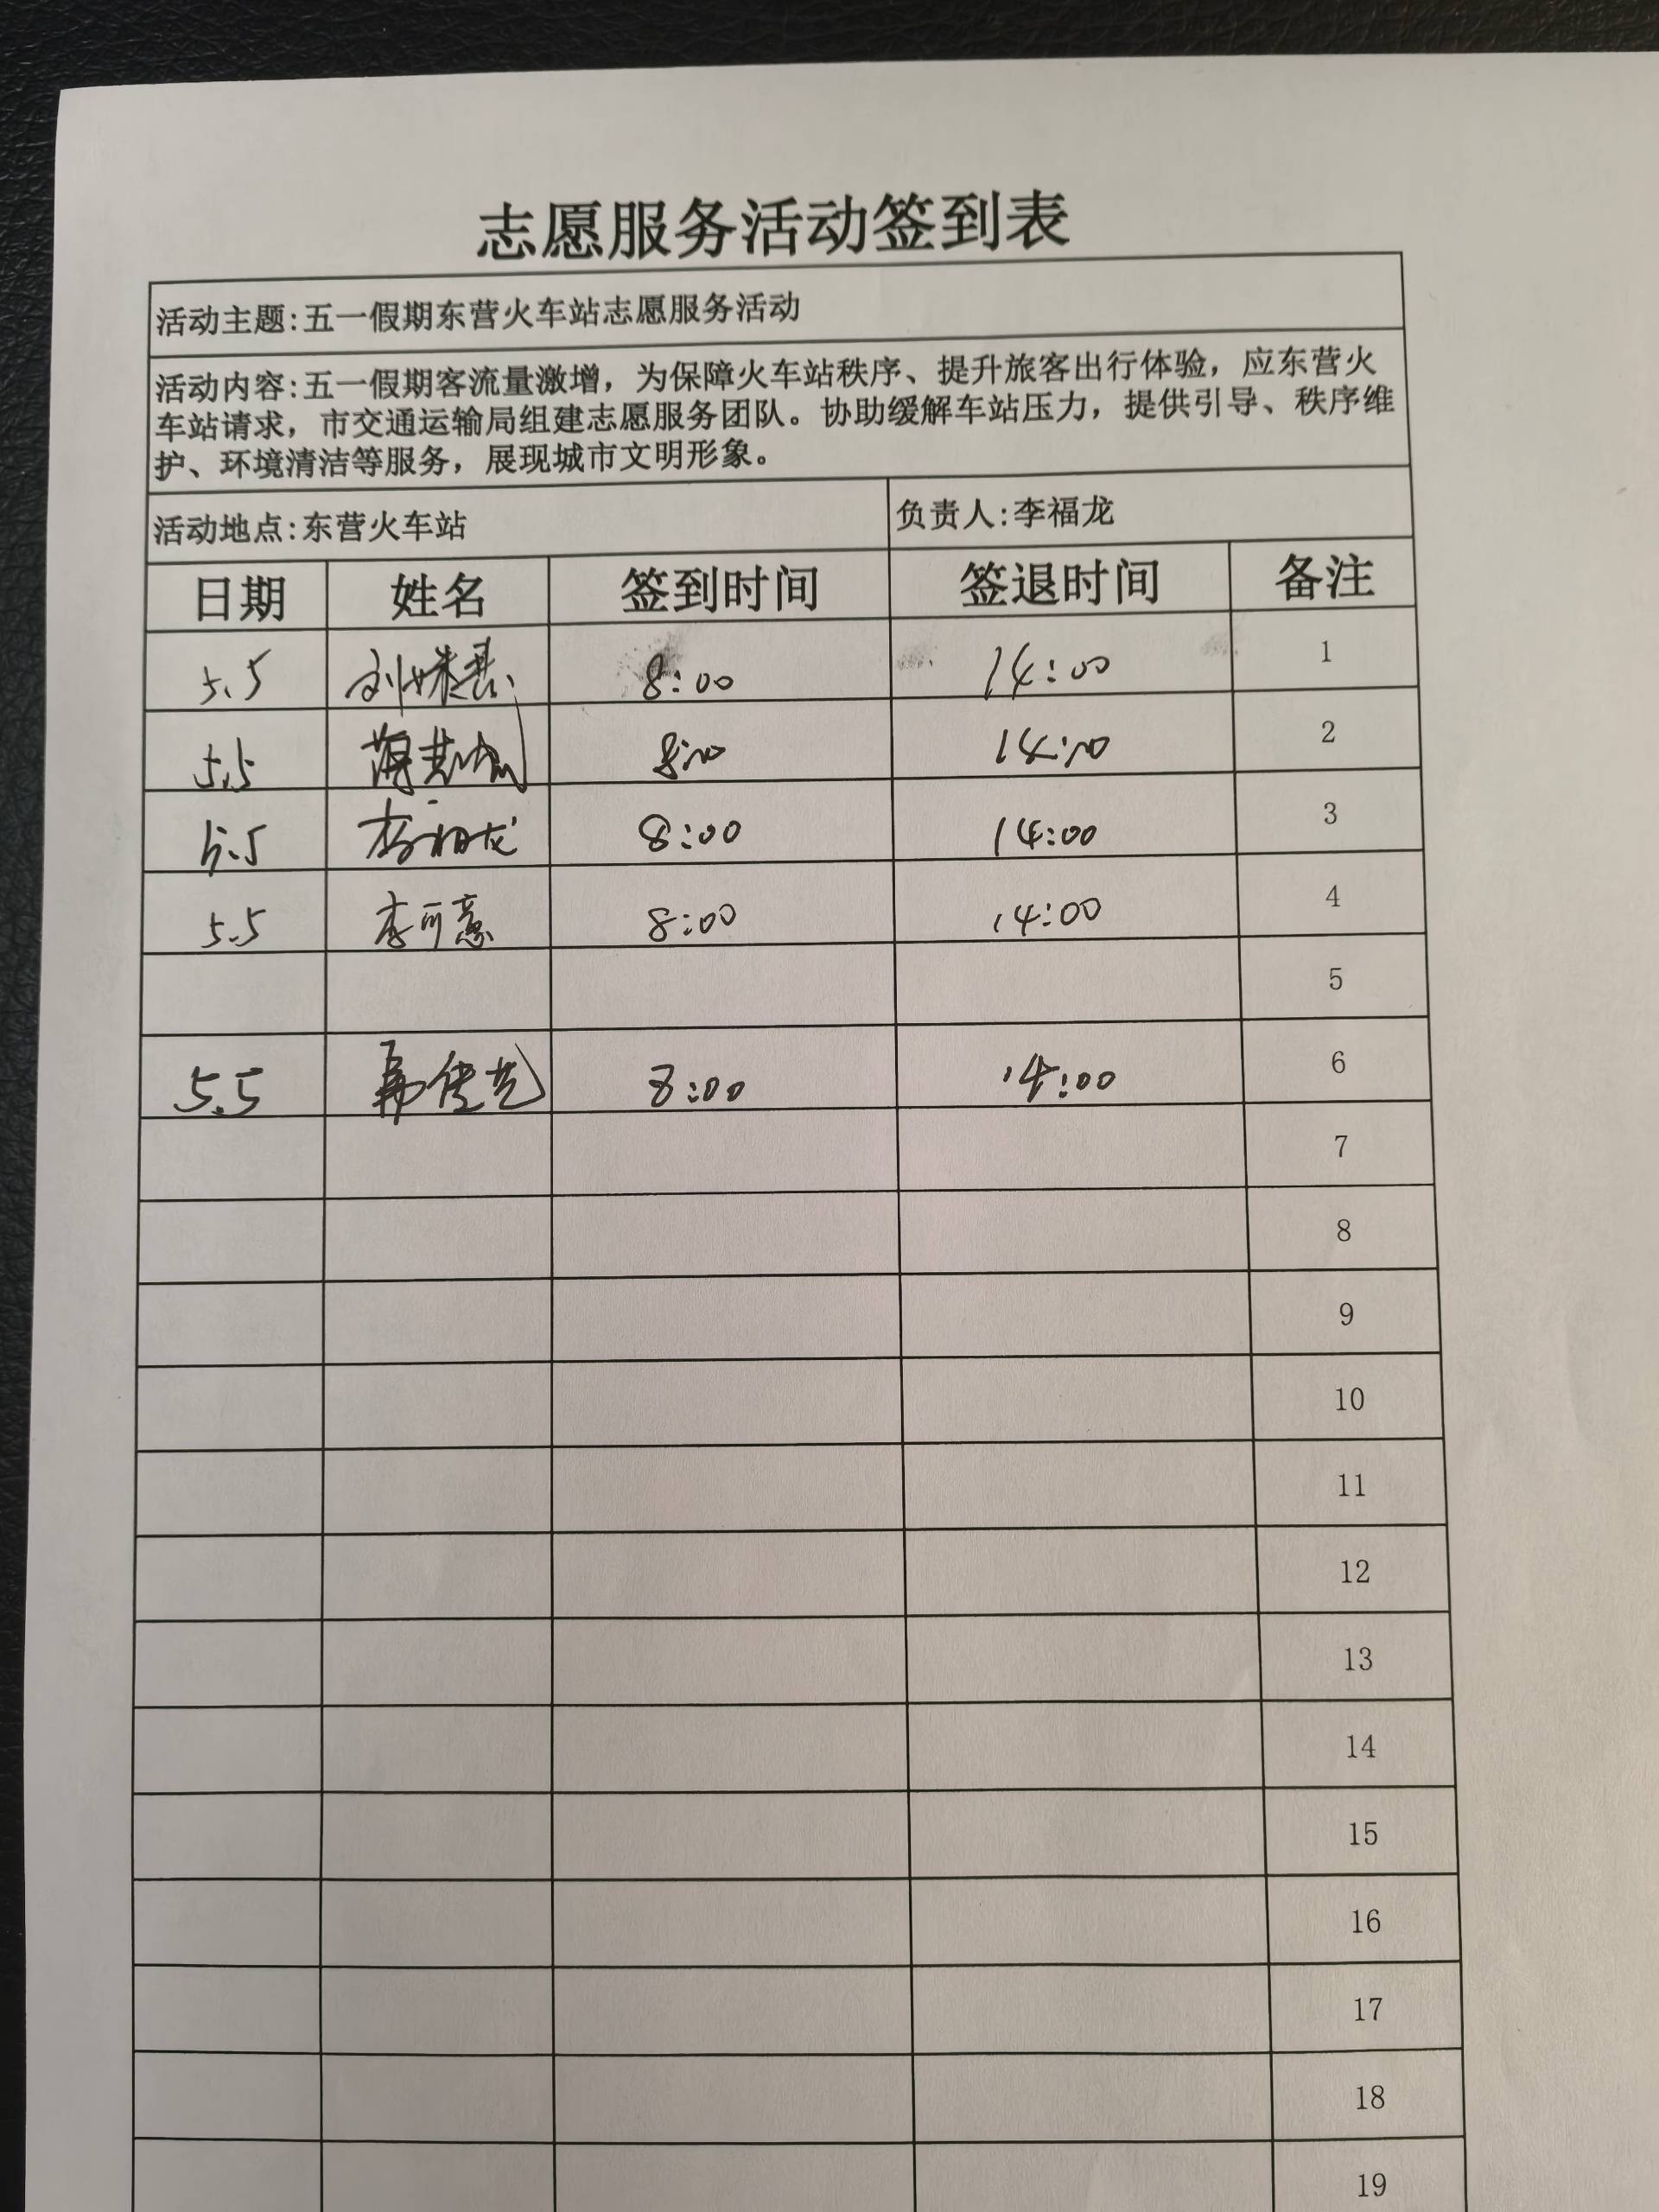 志愿服务活动签到表
活动主题:五一假期东营火车站志愿服务活动
活动内容:五一假期客流量激增，为保障火车站秩序、提升旅客出行体验，应东营火
车站请求，市交通运输局组建志愿服务团队。协助缓解车站压力，提供引导、秩序维
护、环境清洁等服务，展现城市文明形象。
活动地点:东营火车站 负责人:李福龙
日期 姓名 签到时间 签退时间 备注
5.5 刘姝君 8:00 14:00 1
5.5 8:00 14:00 2
5.5 李福龙 8:00 14:00 3
5.5 李可意 8:00 14:00 4
5
5.5 8:00 14:00 6
7
8
9
10
11
12
13
14
15
16
17
18
19